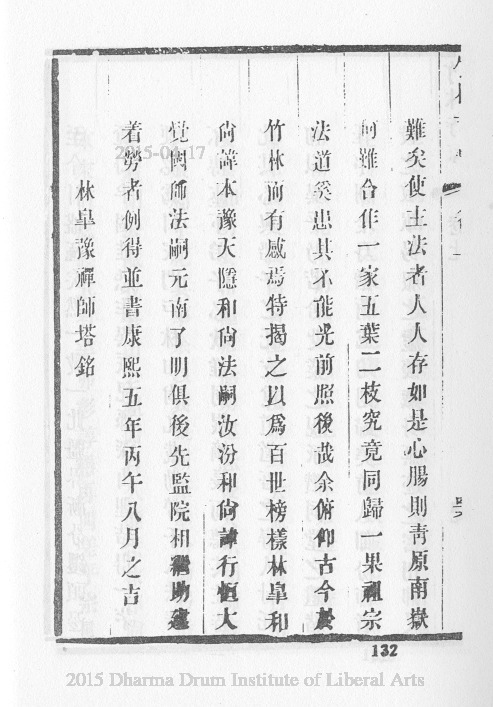 難矣使主法者人人存如是心腸則青原南嶽
何難合作一家五葉二枝究竟同歸一果祖宗
法道奚患其不能光前照後哉余俯仰古今於
竹林而有感焉特揭之以爲百世榜樣林臯和
尙諱本豫天隱和尙法嗣汝汾和尙諱行恒大
覺國師法嗣元南了明俱後先監院相繼助建
着勞者例得並書康熙五年丙午八月之吉
林臯豫禪師塔銘
132
2015-04-17
2015 Dharma Drum Institute of Liberal Arts